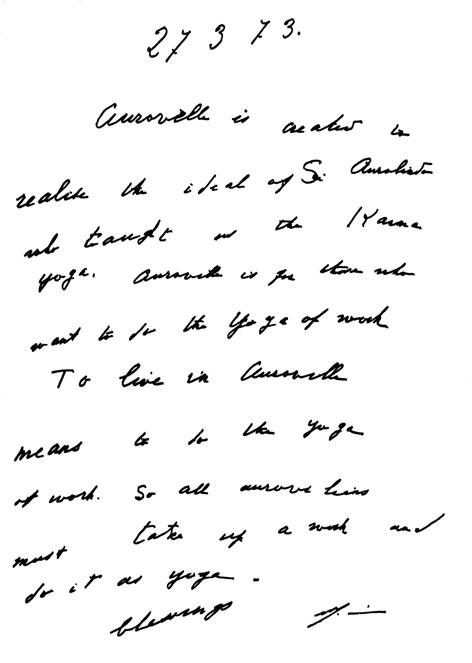 27 3 73.
Auroville is created to
realise the ideal of Sri Aurobindo
who taught us the Karma
yoga. Auroville is for those who
want to do the Yoga of work
To live in Auroville
means to do the yoga
of work. So all aurovilians
must take up a work and
do it as yoga.
blessings